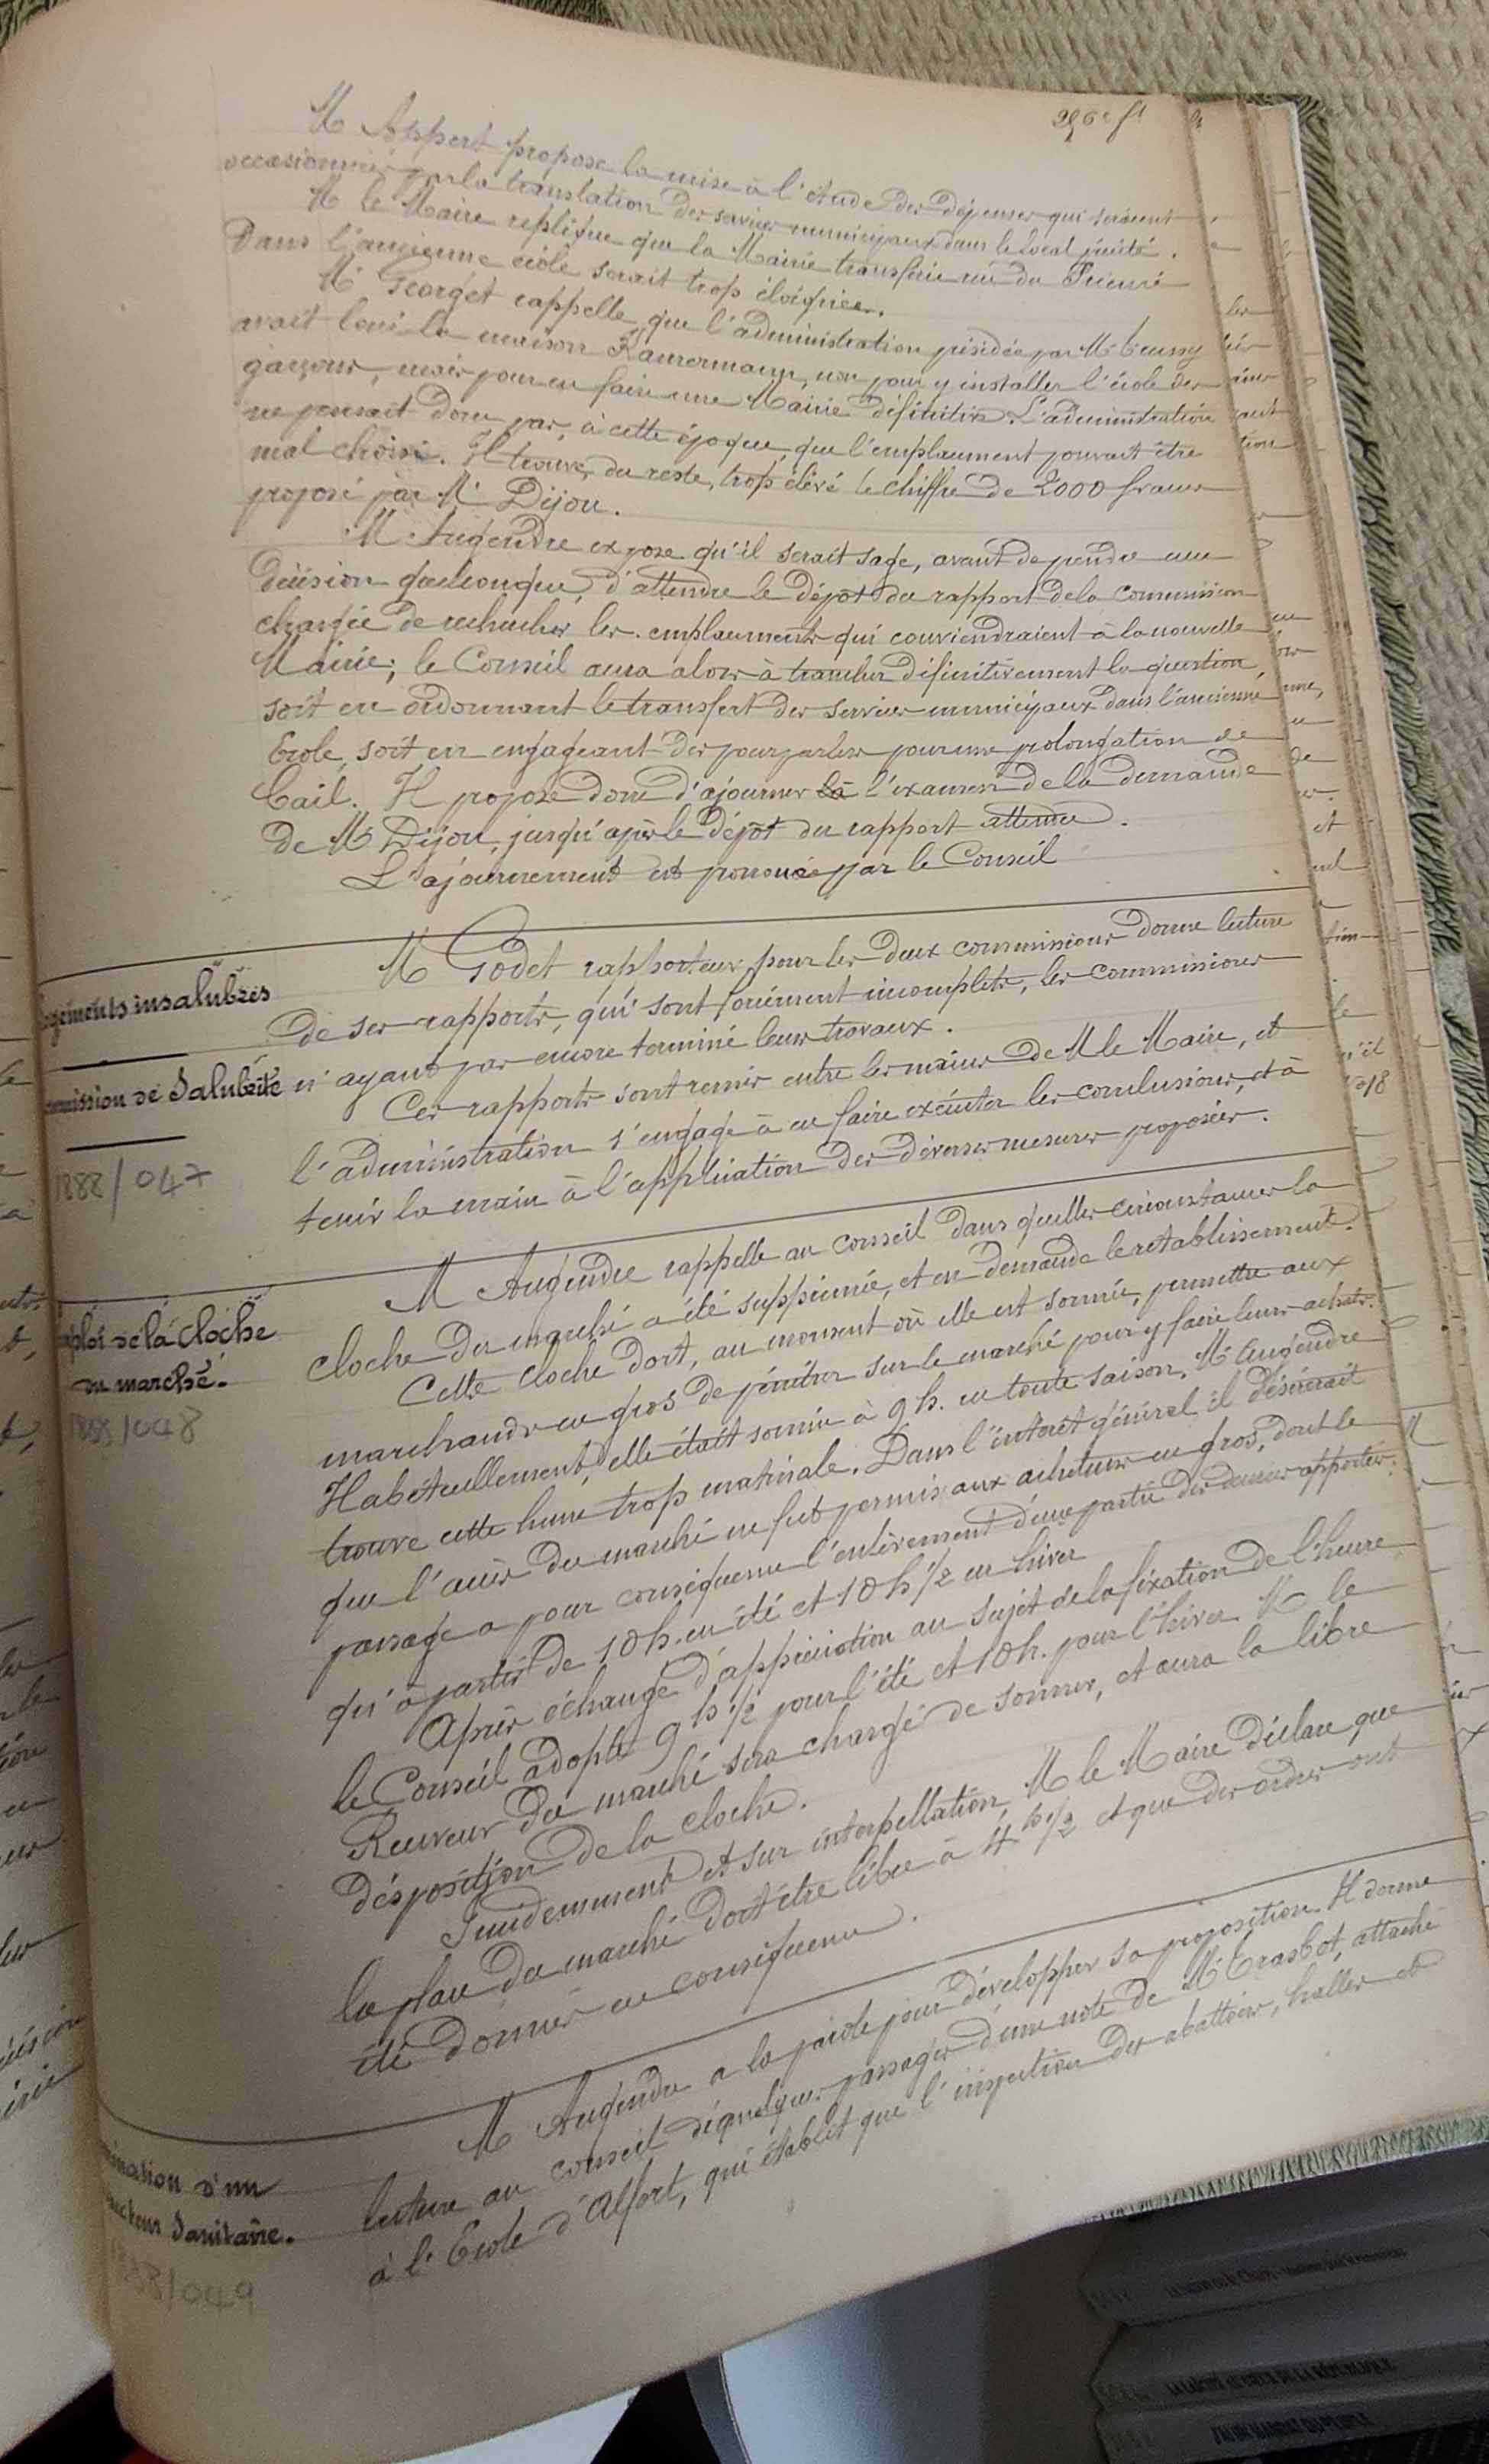 256e ft
M Appert propose la mise à l'étude des dépenses qui seraient
occasionnées par la translation des services municipaux dans le local précité.
M le Maire réplique que la Mairie transférée rue du Prieuré
dans l'ancienne école serait trop éloignée.
M. Georget rappelle que l'administration présidée par M. Coussy
avait loué la maison Kamermann, non pour y installer l'école des
garçons, mais pour en faire une Mairie définitive. L'administration
ne pensait donc pas, à cette époque, que l'emplacement pouvait être
mal choisi. Il trouve, du reste, trop élevé le chiffre de 2000 francs
proposé par M. Dijou.
M Augendre expose qu'il serait sage, avant de prendre une
décision quelconque, d'attendre le dépôt du rapport de la commission
chargée de rechercher les emplacements qui conviendraient à la nouvelle
Mairie; le Conseil aura alors à trancher définitivement la question,
soit en ordonnant le transfert des services municipaux dans l'ancienne
Ecole, soit en engageant des pourparlers pour une prolongation de
bail. Il propose donc d'ajourner la l'examen de la demande
de M. Dijou, jusqu'après le dépôt du rapport attendu.
L'ajournement est prononcé par le Conseil
gements insalubres
mmission de Salubrité
1888/047
M Godet rapporteur pour les deux commissions donne lecture
de ses rapports, qui sont forcément incomplets, les commissions
n'ayant pas encore terminé leurs travaux.
Ces rapports sont remis entre les mains de M le Maire, et
l'administration s'engage à en faire exécuter les conclusions, et à
tenir la main à l'application des diverses mesures proposées.
ploi de la Cloche
du marché.
1888/048
M Augendre rappelle au conseil dans quelles circonstances la
cloche du marché a été supprimée, et en demande le rétablissement.
Cette cloche doit, au moment où elle est sonnée, permettre aux
marchands en gros de pénétrer sur le marché pour y faire leurs achats.
Habituellement, elle était sonnée à 9 h. en toute saison. M. Augendre
trouve cette heure trop matinale. Dans l'intérêt général il désirerait
que l'accès du marché ne fut permis aux acheteurs en gros, dont le
passage a pour conséquence l'enlèvement d'une partie des denrées apportées,
qu'à partir de 10 h. en été et 10 h 1/2 en hiver
Après échange d'appréciation au sujet de la fixation de l'heure
le Conseil adopte 9 h 1/2 pour l'été et 10 h. pour l'hiver. M le
Receveur du marché sera chargé de sonner, et aura la libre
disposition de la cloche.
Incidemment et sur interpellation, M le Maire déclare que
la place du marché doit être libre à 4 h 1/2 et que des ordres ont
été donnés en conséquence.
ination d'un
pecteur Sanitaire.
1888/049
M Augendre a la parole pour développer sa proposition. Il donne
lecture au conseil de quelques passages d'une note de M. Trasbot, attaché
à l'Ecole d'Alfort, qui établit que l'inspection des abattoirs, halles et